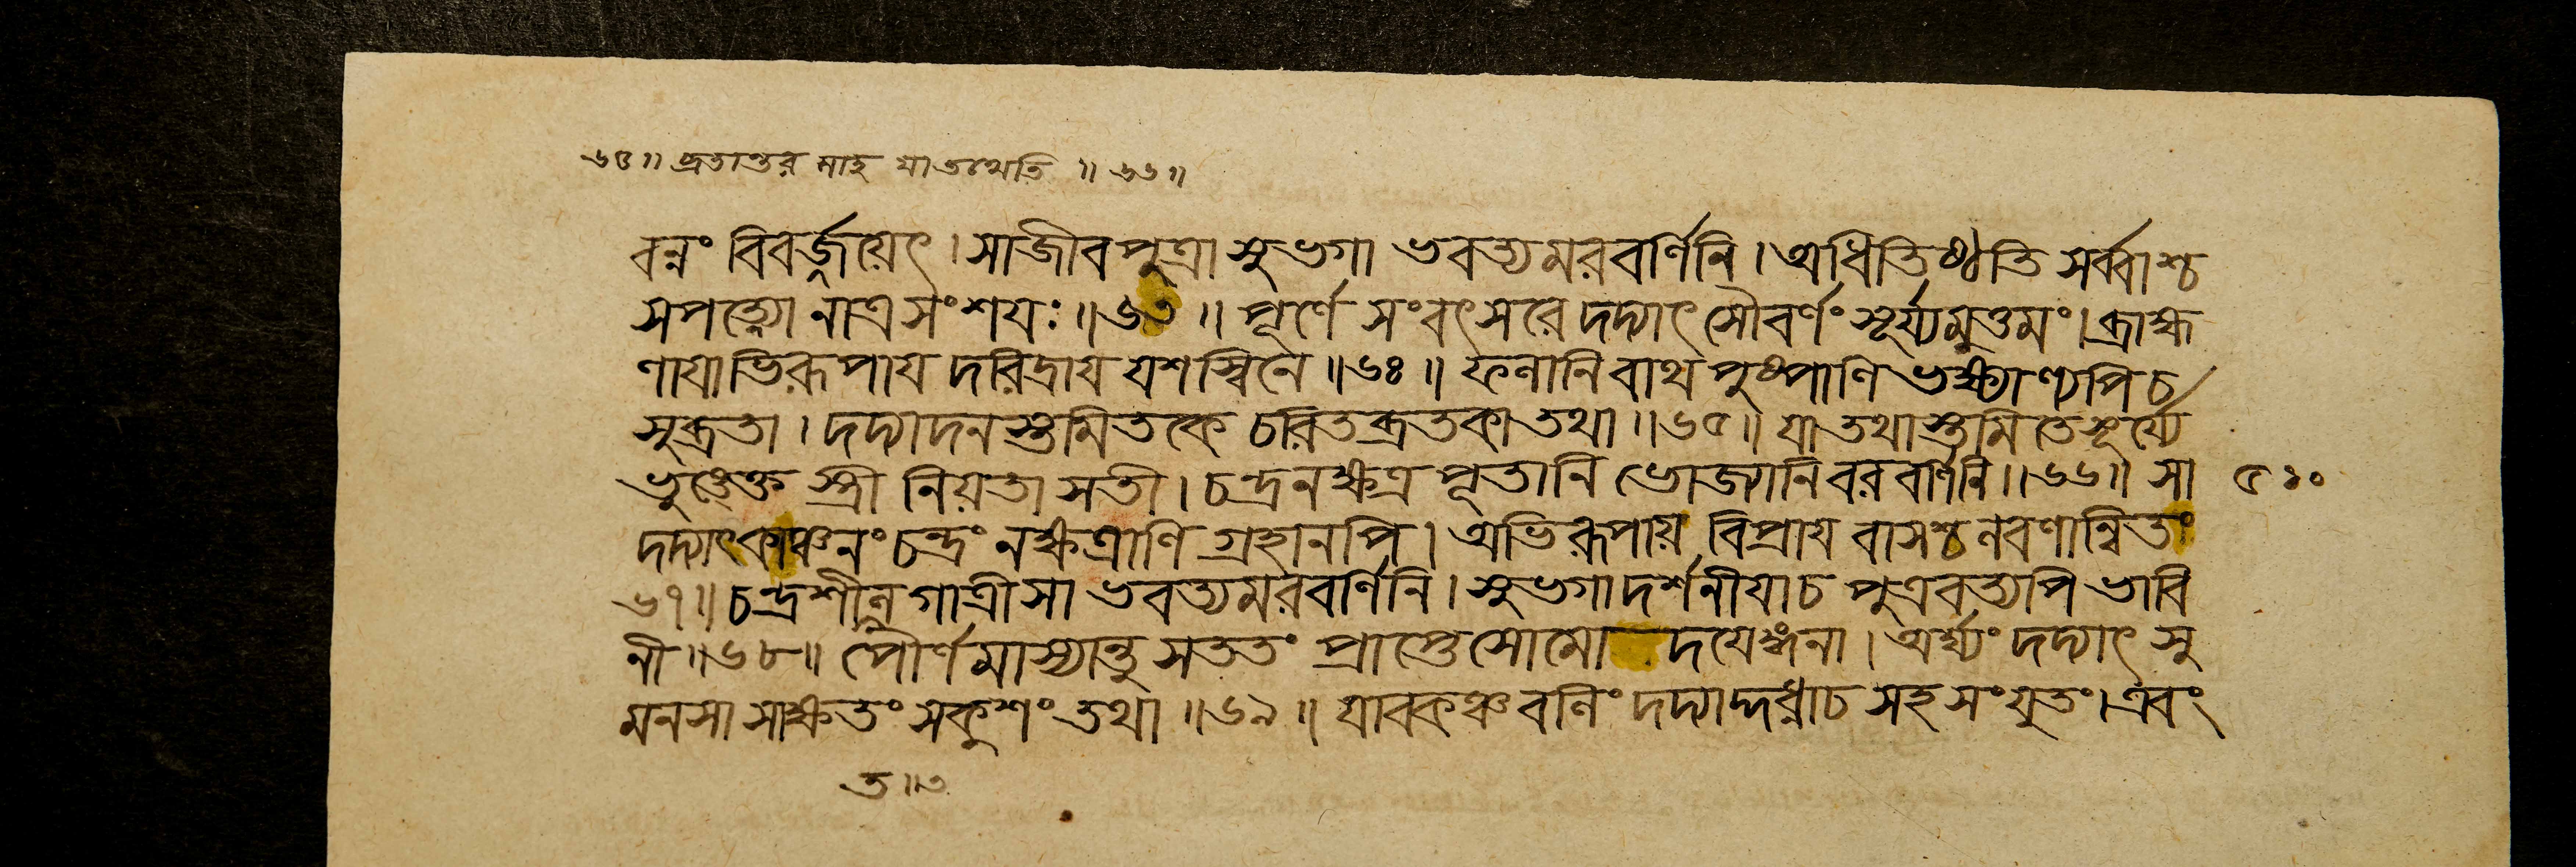 ৬৫॥ ব্রতান্তর মাহ যাতথেতি ॥ ৬৬॥
বন্নং বিবর্জ্জয়েৎ । সাজীবপুত্রা সুভগা ভবত্যমরবর্ণিনি । অধিতিষ্ঠতি সর্ব্বাশ্চ
সপত্ন্যো নাত্রসংশযঃ ॥ ৬৩ ॥ পূর্ণে সংবৎসরে দদ্যাৎ সৌবর্ণং সূর্য্যমুত্তমং । ব্রাহ্ম
ণাযাভিরূপায দরিদ্রায যশস্বিনে ॥ ৬৪ ॥ ফলানি বাথ পুষ্পাণি ভক্ষ্যাণ্যপি চ
সুব্রতা । দদ্যাদনস্তমিতকে চরিতব্রতকা তথা ॥ ৬৫ ॥ যা তথাস্তমিতে সূর্য্যে
ভুঙ্ক্তে স্ত্রী নিয়তা সতী । চন্দ্রনক্ষত্র পূতানি ভোজ্যানি বরবর্ণিনি ॥ ৬৬ ॥ সা ৫১০
দদ্যাৎকাঞ্চনং চন্দ্রং নক্ষত্রাণি গ্রহানপি । অভিরূপায় বিপ্রায বাসশ্চ লবণান্বিতং
৬৭ ॥ চন্দ্রশীলগাত্রী সা ভবত্যমরবর্ণিনি । সুভগা দর্শনীযা চ পুত্রবত্যপি ভাবি
নী ॥ ৬৮ ॥ পৌর্ণমাস্যান্তু সততং প্রাপ্তে সোমো দযেঙ্গনা । অর্ঘ্যং দদ্যাৎ সু
মনসা সাক্ষতং সকুশং তথা ॥ ৬৯ ॥ যাবকঞ্চ বলিং দদ্যাদ্দধ্না চ সহ সংযুতং । এবং
ত ॥ ৩